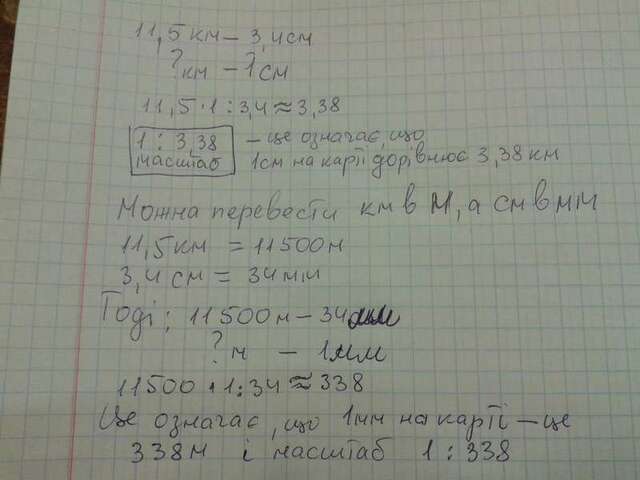 11,5 км – 3,4 см
? км – 1 см
11,5 · 1 : 3,4 ≈ 3,38
1 : 3,38 – це означає, що
масштаб 1см на карті дорівнює 3,38 км
Можна перевести км в м, а см в мм
11,5 км = 11500м
3,4 см = 34мм
Тоді: 11500м – 34мм
? м – 1мм
11500 · 1 : 34 ≈ 338
Це означає, що 1мм на карті – це
338м і масштаб 1 : 338